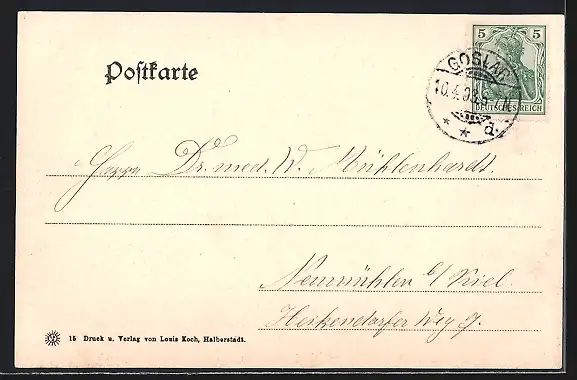 Postkarte
5 5
DEUTSCHES REICH
GOSLAR
10.4.03.5
* * d.
Herrn Dr. med. W. Mühlenhardt.
Neumühlen b/Kiel.
Heikendorfer Weg 9.
15 Druck u. Verlag von Louis Koch, Halberstadt.